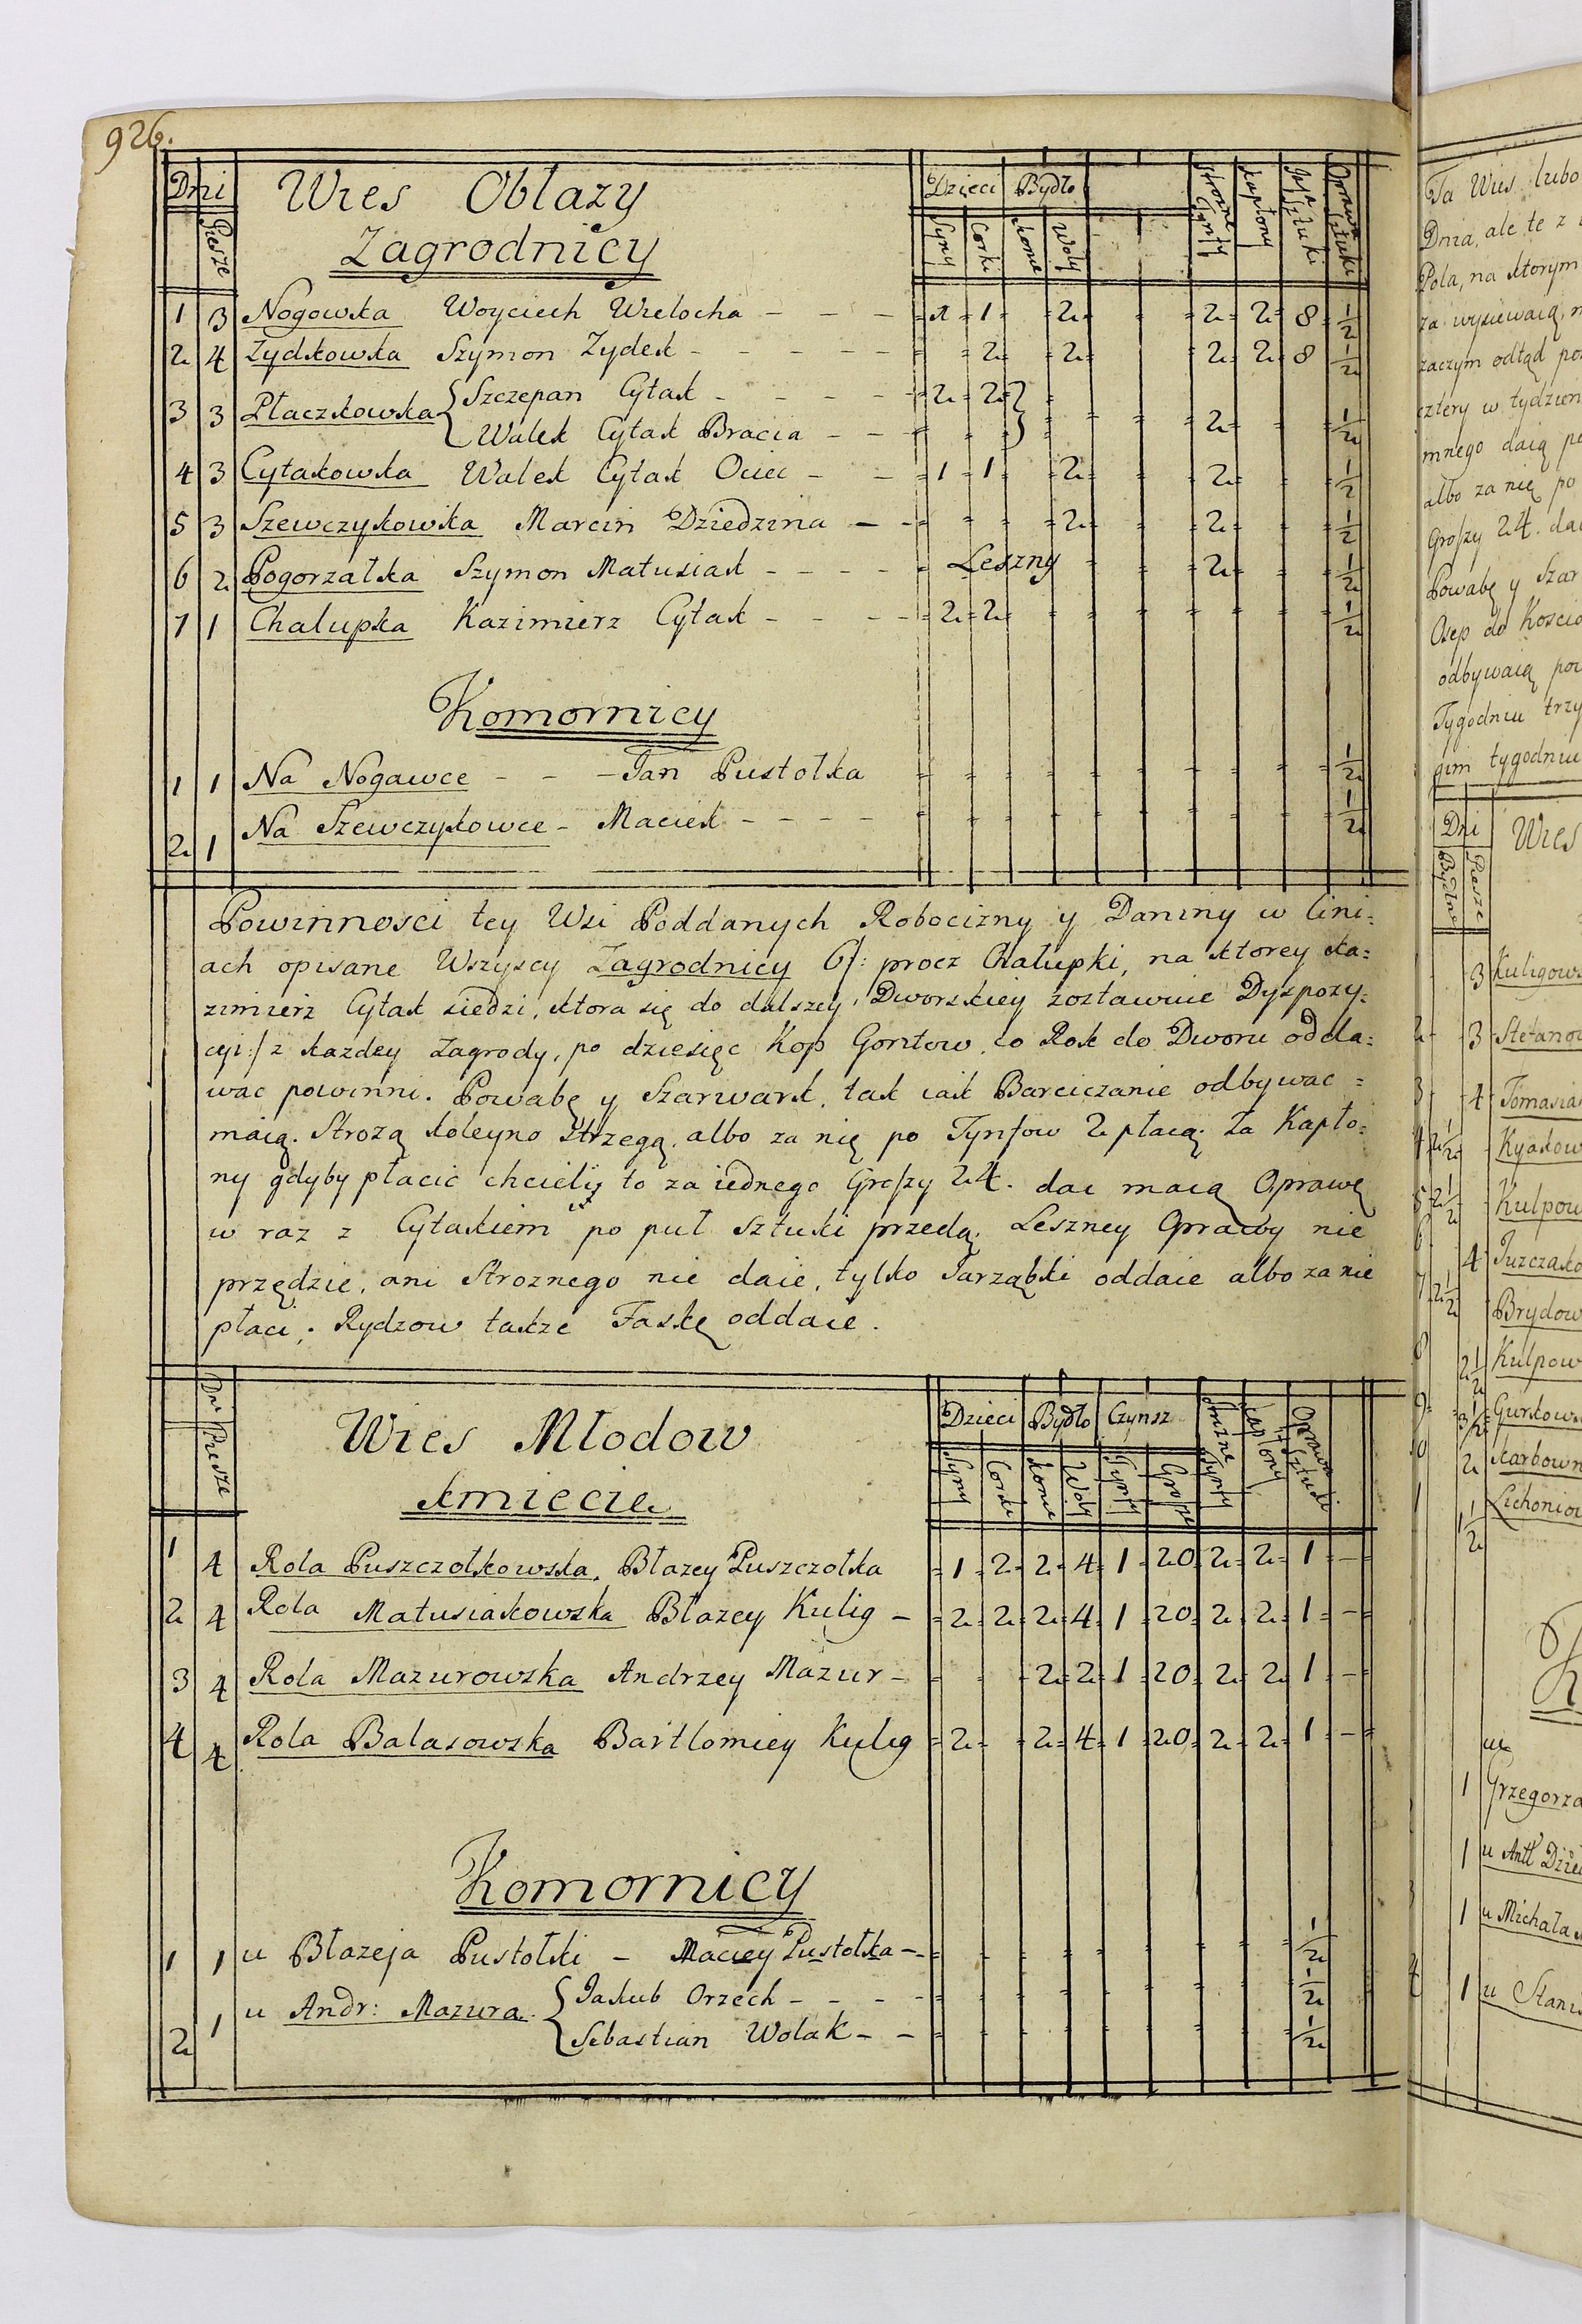 926.
Dni Wies Obłazy Dzieci Bydło Strozne Tynfy Kapłony Jaja Sztuki Oprawa Sztuki
Piesze Zagrodnicy Syny Corki Konie Woły
1 3 Nogowska Woyciech Wielocha - - - 1 1 2 2 2 8 1/2
2 4 Zydkowska Szymon Zydek - - - - - 2 2 2 2 8 1/2
3 3 Płaczkowska { Szczepan Cyłak - - - - - 2 2 }
Walek Cyłak Bracia - - - 2 1/2
4 3 Cyłakowska Walek Cyłak Ociec - - 1 1 2 2 1/2
5 3 Szewczykowska Marcin Dziedzina - - 2 2 1/2
6 2 Pogorzałka Szymon Matusiak - - - - Leszny 2 1/2
7 1 Chalupka Kazimierz Cyłak - - - - 2 2 1/2
Komornicy
1 1 Na Nogawce - - - Jan Pustołka 1/2
2 1 Na Szewczykowce - Maciek - - - - 1/2
Powinnosci tey Wsi Poddanych Robocizny y Daniny w lini=
ach opisane Wszyscy Zagrodnicy 6/: procz Chałupki, na ktorey Ka=
zimierz Cyłak siedzi, ktora się do dalszey Dworskiey zostawuie Dyspozy=
cyi :/ z kazdey Zagrody, po dziesięc Kop Gontow, co Rok do Dworu odda=
wac powinni. Powabę y Szarwark, tak iak Barciczanie odbywac =
maią. Strozą koleyno strzegą, albo za nię po Tynfow 2 płacą. Za Kapło=
ny gdyby płacic chcieli to za iednego Groszy 24. dac maią Oprawę
w raz z Cyłakiem po puł Sztuki przedą. Leszney Oprawy nie
przędzie, ani Stroznego nie daie, tylko Jarząbki oddaie albo za nie
płaci. Rydzow takze Faskę oddaie.
Dni Piesze Wies Młodow Dzieci Bydło Czynsz Strozne Tynfy Kapłony Oprawa Sztuki
Kmiecie Syny Corki Konie Woły Tynfy Grosze
1 4 Rola Puszczołkowska, Błazey Puszczołka 1 2 2 4 1 20 2 2 1 -
2 4 Rola Matusiakowska Błazey Kulig - 2 2 2 4 1 20 2 2 1 -
3 4 Rola Mazurowska Andrzey Mazur - 2 2 1 20 2 2 1 -
4 4 Rola Balasowska Bartlomiey Kulig 2 2 4 1 20 2 2 1 -
Komornicy
1 1 u Błazeja Pustołki - Maciey Pustołka - 1/2
2 1 u Andr: Mazura { Jakub Orzech - - - - 1/2
Sebastian Wolak - - 1/2
Ta Wies lubo
Dnia, ale te z
Pola, na ktorym
za wysiewaią,
zaczym odtąd
cztery w tydzien
mnego daią
albo za nię po
Groszy 24. da
Powabę y Szar
Osep do Koscio
odbywaią
Tygodniu trzy
gim tygodniu
Dni Wies
Bydlne Piesze
3 Kuligows
2 3 Stefanow
3 4 Tomasia
4 2 1/2 Kyakow
5 2 1/2 Kulpow
6 4 Juzczako
7 2 1/2 Brydow
8 2 1/2 Kulpow
9 3 1/2 Gurkows
2 Karbown
1 1/2 Lichoniow
K
1 Grzegorza
1 u Antt Dzie
1 u Michała
1 u Stani